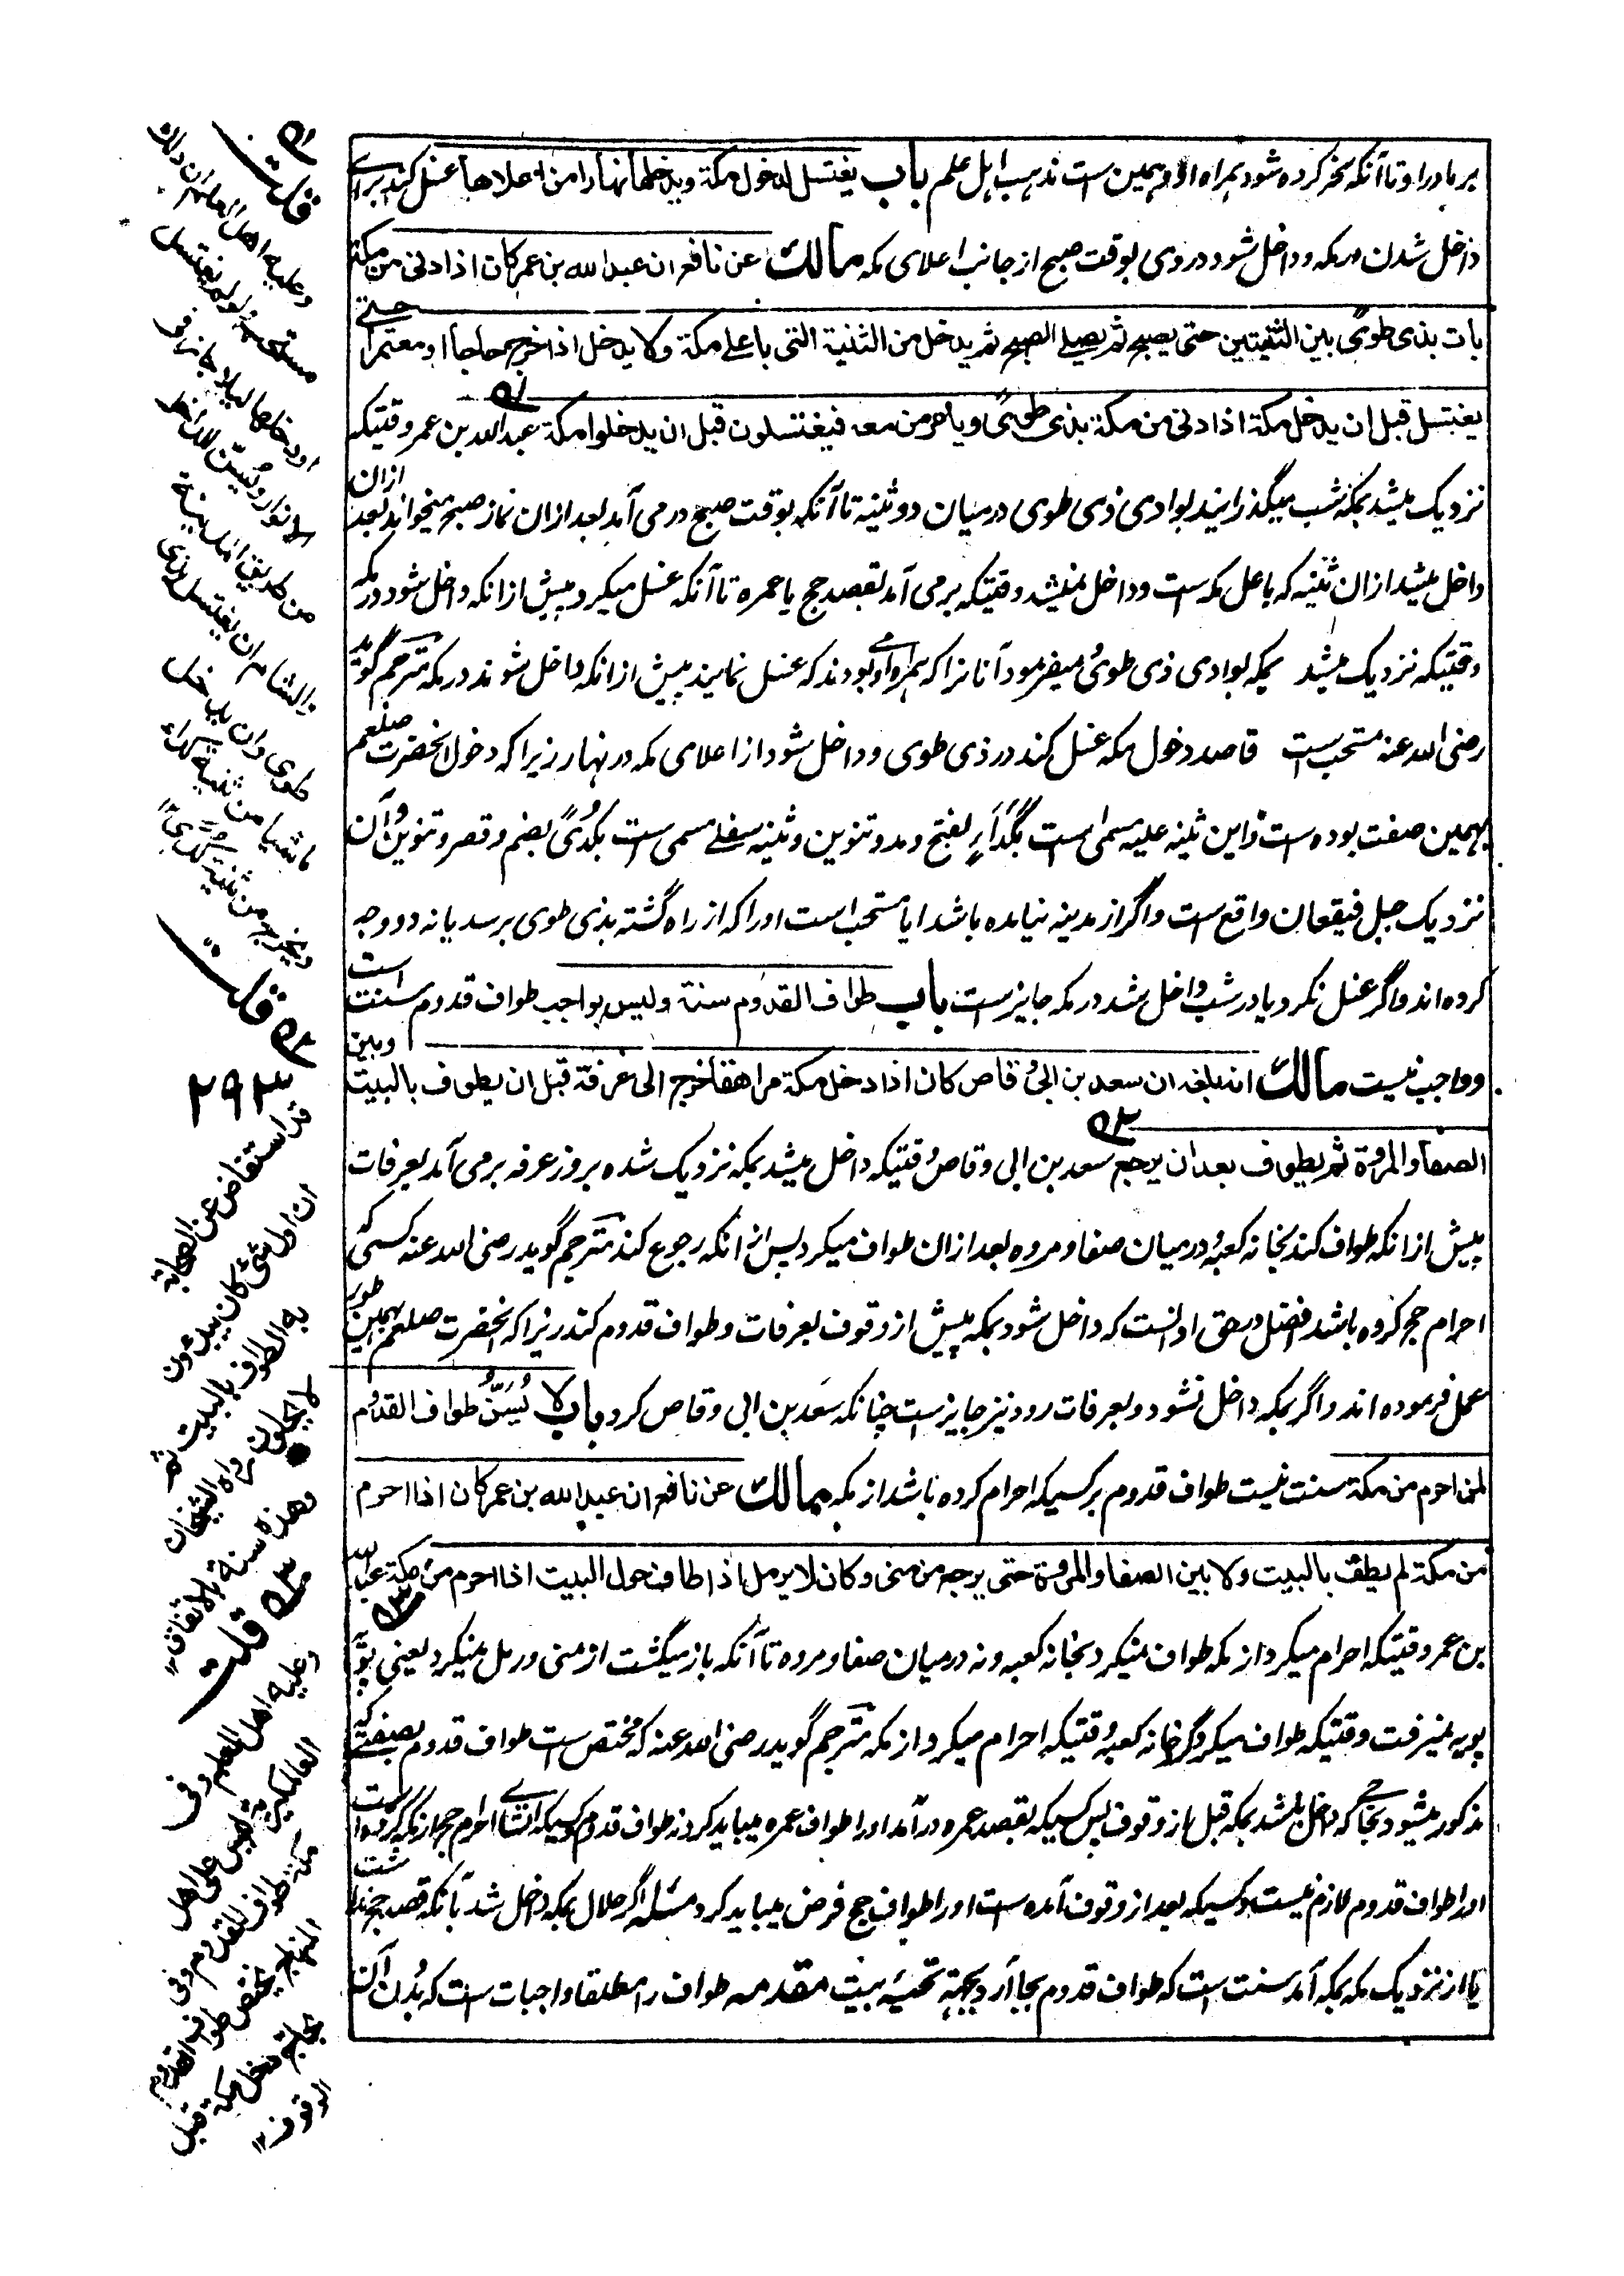 بر مادر او تا آنکه نحر کرده شود همراه او و همین ست مذهب اهل علم باب یغتسل لدخول مکة ویدخلها نهارا من اعلاها غسل کند برای
داخل شدن در مکه و داخل شود در وی بوقت صبح از جانب اعلای مکه مالك عن نافع ان عبد الله بن عمر کان اذا دنی من مکة
بات بذی طوًی بین الثنیتین حتی یصبح ثم یصلے الصبح ثم یدخل من الثنیة التی باعلے مکة ولا یدخل اذا خرج حاجا او معتمرا حتے
یغتسل قبل ان یدخل مکة اذا دنی من مکة بذی طوًی ویأمر من معه فیغتسلون قبل ان یدخلوا مکة عبد الله بن عمر وقتیکه
نزدیک میشد بمکه شب میگذرانید بوادی ذی طوی در میان دو ثنیه تا آنکه بوقت صبح در می آمد بعد ازان نماز صبح میخواند بعد ازان
داخل میشد ازان ثنیه که باعلی مکه است و داخل نمیشد وقتیکه برمی آمد بقصد حج یا عمره تا آنکه غسل میکرد پیش ازانکه داخل شود در مکه
وقتیکه نزدیک میشد بمکه بوادی ذی طوی میفرمود آنانرا که همراه او بودند که غسل نمایند پیش ازانکه داخل شوند در مکه مترجم گوید
رضی الله عنه مستحب ست قاصد دخول مکه غسل کند در ذی طوی و داخل شود از اعلای مکه در نهار زیرا که دخول آنحضرت صلعم
بهمین صفت بوده ست و این ثنیه علیه مسمی است بکَدَاءٍ بفتح و مد و تنوین و ثنیه سفلے مسمی ست بکُدًی بضم و قصر و تنوین و آن
نزدیک جبل قیقعان واقع ست و اگر از مدینه نیامده باشد ایا مستحب است او را که از راه گشته بذی طوی برسد یا نه دو وجه
کرده اند و اگر غسل نکرد یا در شب داخل شد در مکه جایز ست باب طواف القدوم سنة ولیس بواجب طواف قدوم سنت است
و واجب نیست مالك انه بلغه ان سعد بن ابی وقاص کان اذا دخل مکة مراهقا خرج الی عرفة قبل ان یطوف بالبیت وبین
الصفا والمروة ثم یطوف بعد ان یرجع سعد بن ابی وقاص وقتیکه داخل میشد بمکه نزدیک شده بروز عرفه برمی آمد بعرفات
پیش ازانکه طواف کند بخانه کعبه و در میان صفا و مروه بعد ازان طواف میکرد پس از انکه رجوع کند مترجم گوید رضی الله عنه کسی که
احرام حج کرده باشد افضل در حق او انست که داخل شود بمکه پیش از وقوف بعرفات و طواف قدوم کند زیرا که آنحضرت صلعم بهمین طور
عمل فرموده اند و اگر بمکه داخل نشود و بعرفات رود نیز جایز ست چنانکه سعد بن ابی وقاص کرد باب لا یُسَنُّ طواف القدوم
لمن احرم من مکة سنت نیست طواف قدوم بر کسیکه احرام کرده باشد از مکه مالك عن نافع ان عبد الله بن عمر کان اذا احرم
من مکة لم یطف بالبیت ولا بین الصفا والمروة حتی یرجع من منی وکان لا یرمل اذا طاف حول البیت اذا احرم من مکة عبد الله
بن عمر وقتیکه احرام میکرد از مکه طواف نمیکرد بخانه کعبه و نه در میان صفا و مروه تا آنکه باز میگشت از منی و رمل نمیکرد یعنی
پویه نمیرفت وقتیکه طواف میکرد گرد خانه کعبه وقتیکه احرام میکرد از مکه مترجم گوید رضی الله عنه که مختص ست طواف قدوم بصفتے که
مذکور میشود بحاجی که داخل باشد بمکه قبل از وقوف پس کسیکه بقصد عمره در آمد او را طواف عمره میباید کرد نه طواف قدوم و کسیکه انشای احرام حج از مکه کرده است
او را طواف قدوم لازم نیست و کسیکه بعد از وقوف آمده ست او را طواف حج فرض میباید کرد مسئله اگر حلال بمکه داخل شد
یا از نزدیک مکه بمکه آمد سنت ست که طواف قدوم بجا آرد بجهة تحیه بیت مقدمه طواف را مطلقا واجبات ست که بدون آن
قلت
وعلیه اهل العلم ان ذلك
مستحب ولو لم یغتسل
او دخلها لیلا جاز وفی
الانوار ویسن للداخل
من طریق المدینة
والشام ان یغتسل بذی
طوی وان یدخل
مکة من ثنیة کداء
ویخرج من ثنیة کدی
قلت
۲۹۳
قد استفاض عن الصحابة
ان اول شئ کان یبدءون
به الطواف بالبیت ثم
لا یحلون رواه الشیخان
وهذه سنة بالاتفاق
قلت
وعلیه اهل العلم وفی
العالمگیریة لیس علی اهل
مکة طواف القدوم وفی
المنهاج یختص طواف القدوم
بحاج دخل مکة قبل
الوقوف